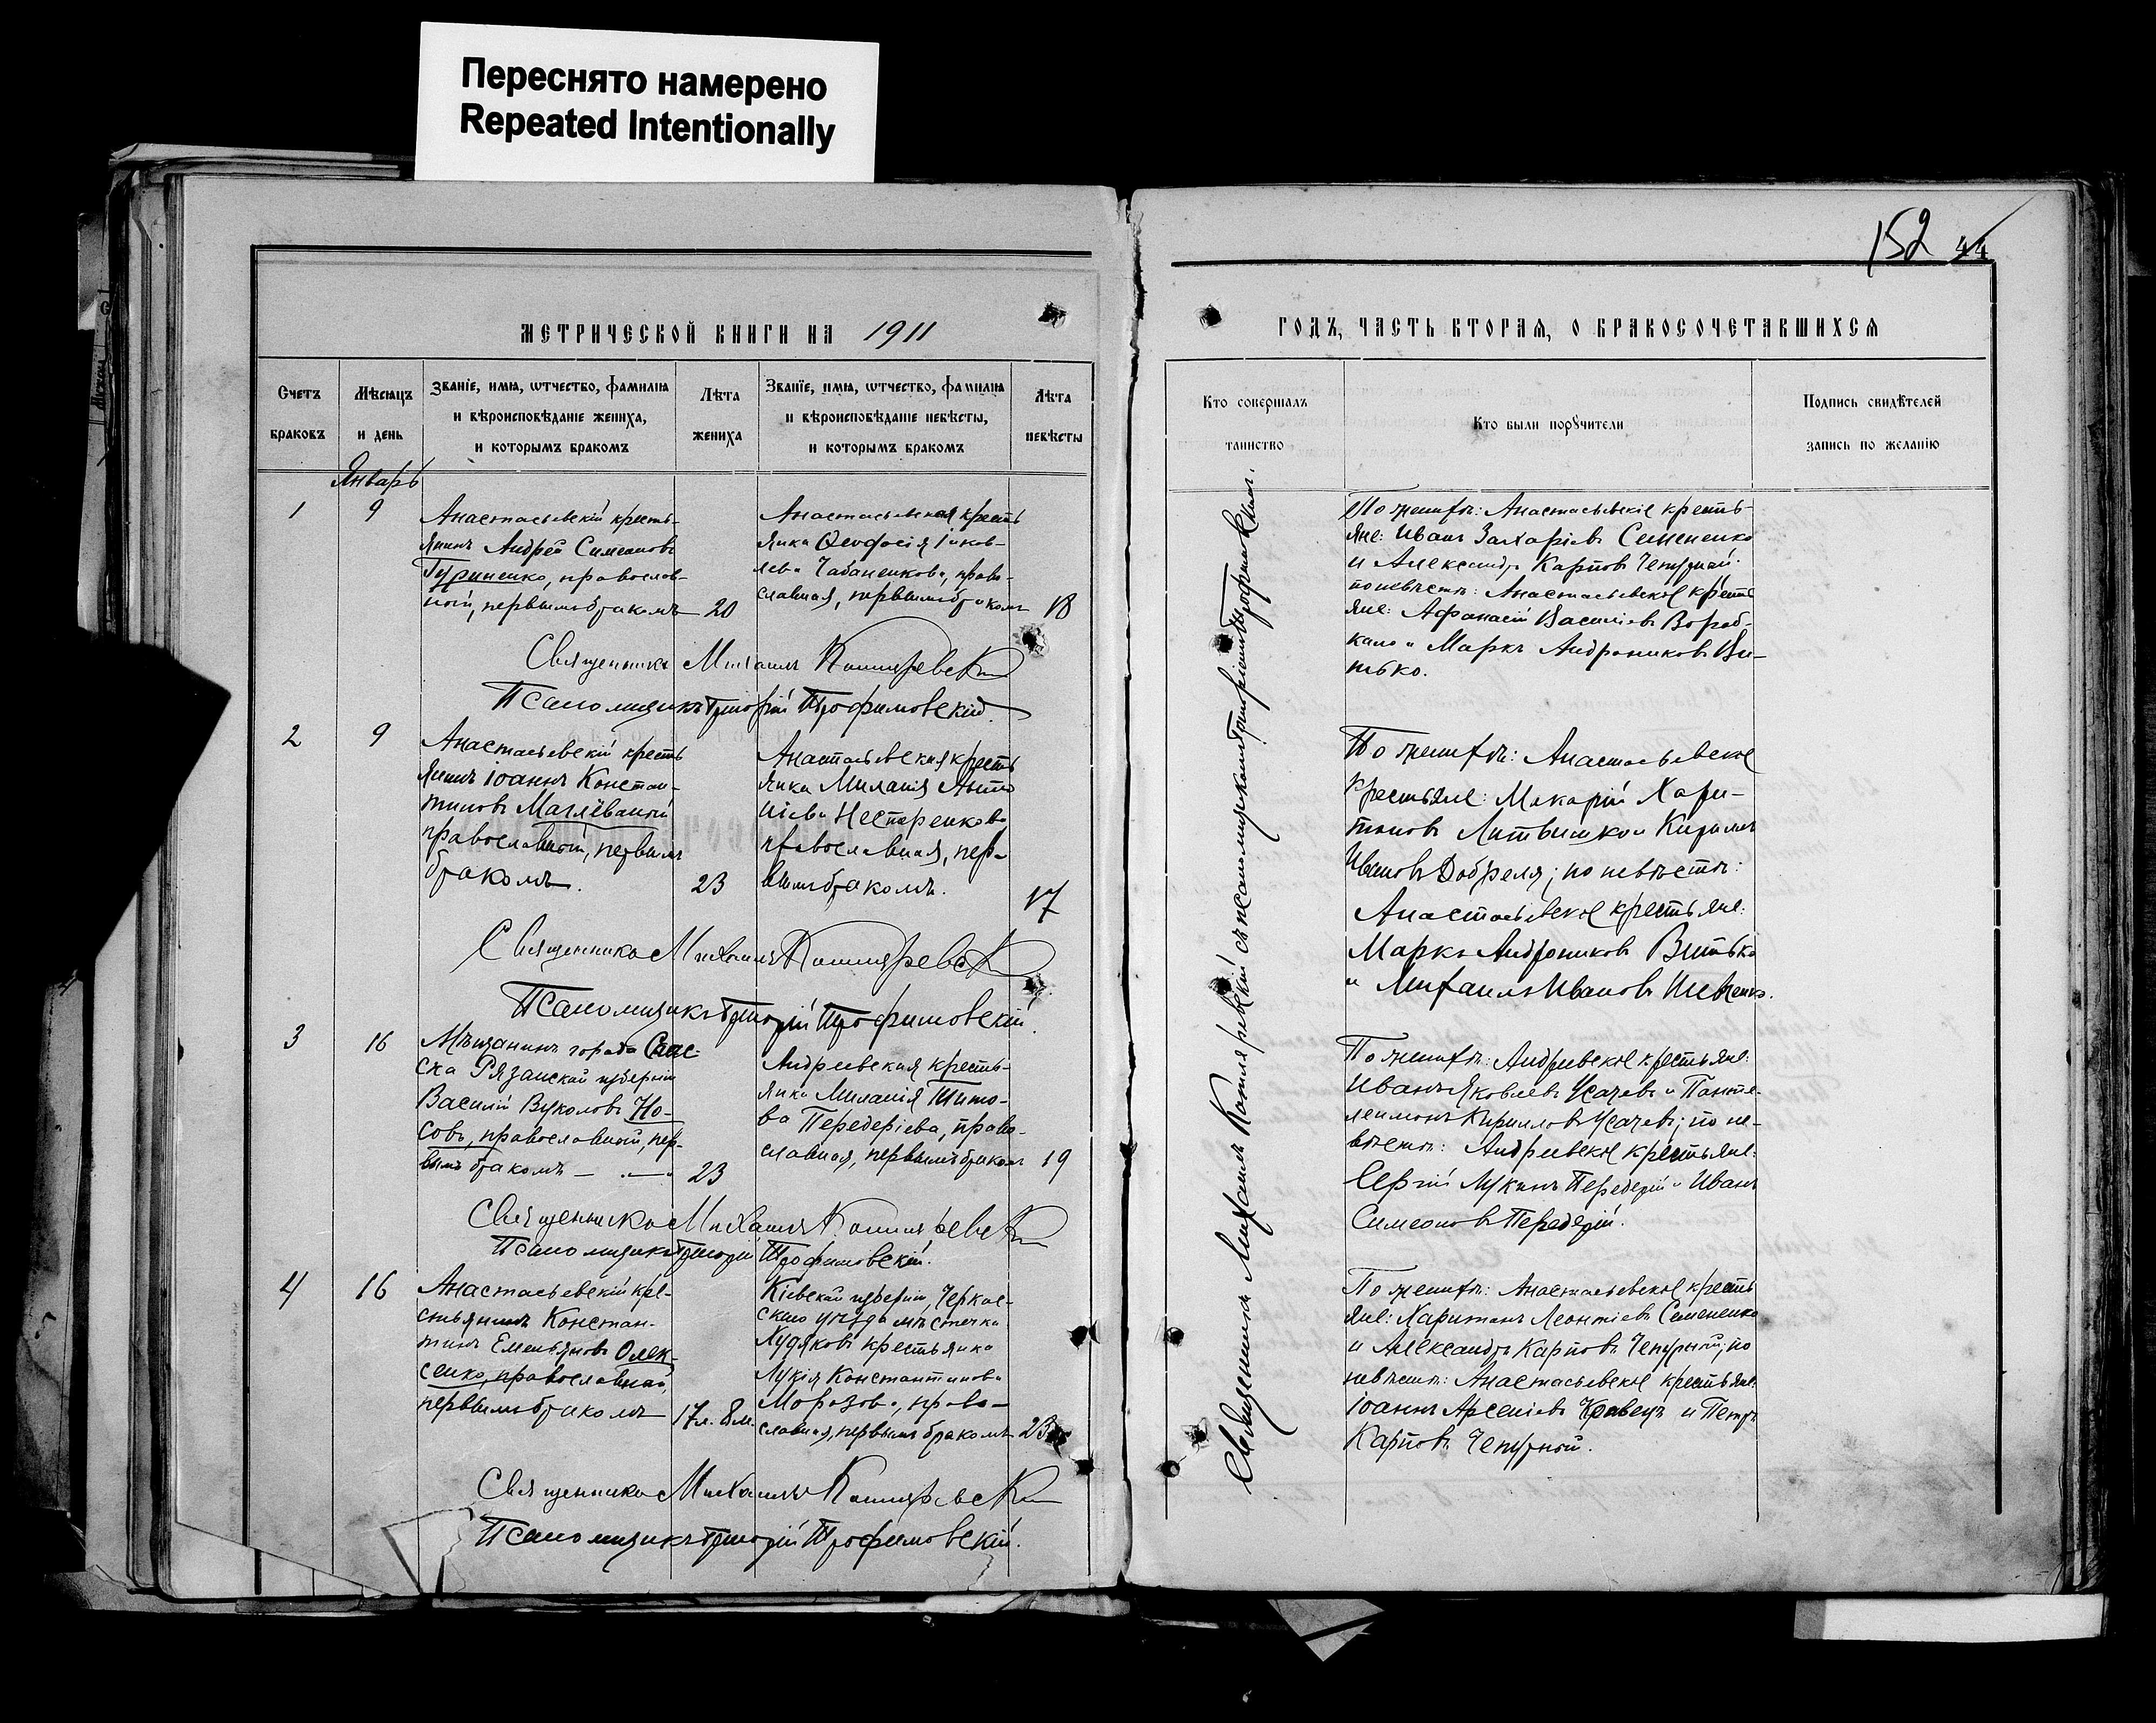 Переснято намерено
Repeated Intentionally
152 44
МЕТРИЧЕСКОЙ КНИГИ НА 1911
ГОДЪ, ЧАСТЬ ВТОРАЯ, О БРАКОСОЧЕТАВШИХСЯ
Счетъ
браковъ
Мѣсяцъ
и день
Званіе, имя, ѡтчество, фамиліа
и вѣроисповѣданіе жениха,
и которымъ бракомъ
Лѣта
жениха
Званіе, имя, ѡтчество, фамиліа
и вѣроисповѣданіе невѣсты,
и которымъ бракомъ
Лѣта
невѣсты
Кто совершалъ
таинство
Кто были порꙋчители
Подпись свидѣтелей
запись по желанію
Январь
1
9
Анастасьевскій кресть-
янинъ Андрей Симеоновъ
Гуриненко, православ-
ный, первымъ бракомъ
20
Анастасьевская кресть
янка Ѳеодосія Іаков-
лева Чабаненкова, право-
славная, первымъ бракомъ
18
По женихѣ: Анастасьевскіе кресть-
яне: Иванъ Захаріевъ Семененко
и Александръ Карповъ Чепурной.
по невѣстѣ: Анастасьевскіе кресть
яне: Афанасій Василіевъ Вороб-
кало и Маркъ Андрониковъ Ви-
тько.
Священникъ Михаилъ Котляревскій
Псаломщикъ Григорій Трофимовскій.
2
9
Анастасьевскій кресть
янинъ Іоаннъ Констан-
тиновъ Маглёванный
православный, первымъ
бракомъ.
23
Анастасьевская кресть
янка Миланія Анто
ніева Нестеренкова
православная, пер-
вымъ бракомъ.
17
По женихѣ: Анастасьевскіе
крестьяне: Макарій Хари-
тоновъ Литвишко и Кириллъ
Ивановъ Добреля; по невѣстѣ:
Анастасьевскіе крестьяне:
Маркъ Андрониковъ Витько
и Михаилъ Ивановъ Шевченко.
Священникъ Михаилъ Котляревскій
Псаломщикъ Григорій Трофимовскій.
3
16
Мѣщанинъ города Спас-
ска Рязанской губерніи
Василій Вуколовъ Но-
совъ, православный, пер-
вымъ бракомъ
23
Андреевская кресть-
янка Миланія Тито-
ва Передеріева, право-
славная, первымъ бракомъ
19
По женихѣ: Андреевскіе крестьяне:
Иванъ Яковлевъ Усачевъ и Панте-
леимонъ Кирилловъ Усачевъ; по не-
вѣстѣ: Андреевскіе крестьяне:
Сергій Лукинъ Передерій и Иванъ
Симеоновъ Передерій.
Священникъ Михаилъ Котляревскій
Псаломщикъ Григорій Трофимовскій.
4
16
Анастасьевскій кре-
стьянинъ Констан-
тинъ Емельяновъ Олек-
сенко, православный,
первымъ бракомъ
17 л. 8 м.
Кіевской губерніи, Черкас-
скаго уѣзда мѣстечка
Худяковъ крестьянка
Лукія Константинова
Морозова, право-
славная, первымъ бракомъ
23
По женихѣ: Анастасьевскіе кресть
яне: Харитонъ Леонтіевъ Семененко
и Александръ Карповъ Чепурный; по
невѣстѣ: Анастасьевскіе крестьяне:
Іоаннъ Арсеніевъ Кравецъ и Петръ
Карповъ Чепурной.
Священникъ Михаилъ Котляревскій
Псаломщикъ Григорій Трофимовскій.
Священникъ Михаилъ Котляревскій съ псаломщикомъ Григоріемъ Трофимовскимъ.